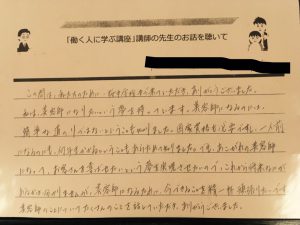 「働く人に学ぶ講座」講師の先生のお話を聴いて
この間は、私たちのために
来ていただき、ありがとうございました。
私は、美容師になりたいという夢を持っています。美容師になるためには、
簡単な道のりではないということを知りました。国家資格も必要ですし、一人前
になるのにも、何年もかかるということをあらためて知りました。でも、あこがれの美容師
になって、お客さんを喜ばせたいという夢を実現させたいので、これから
ありますが、美容師になるために、今できることを精一杯頑張ります。
美容師のことについてたくさんのことを話していただき、ありがとうございました。